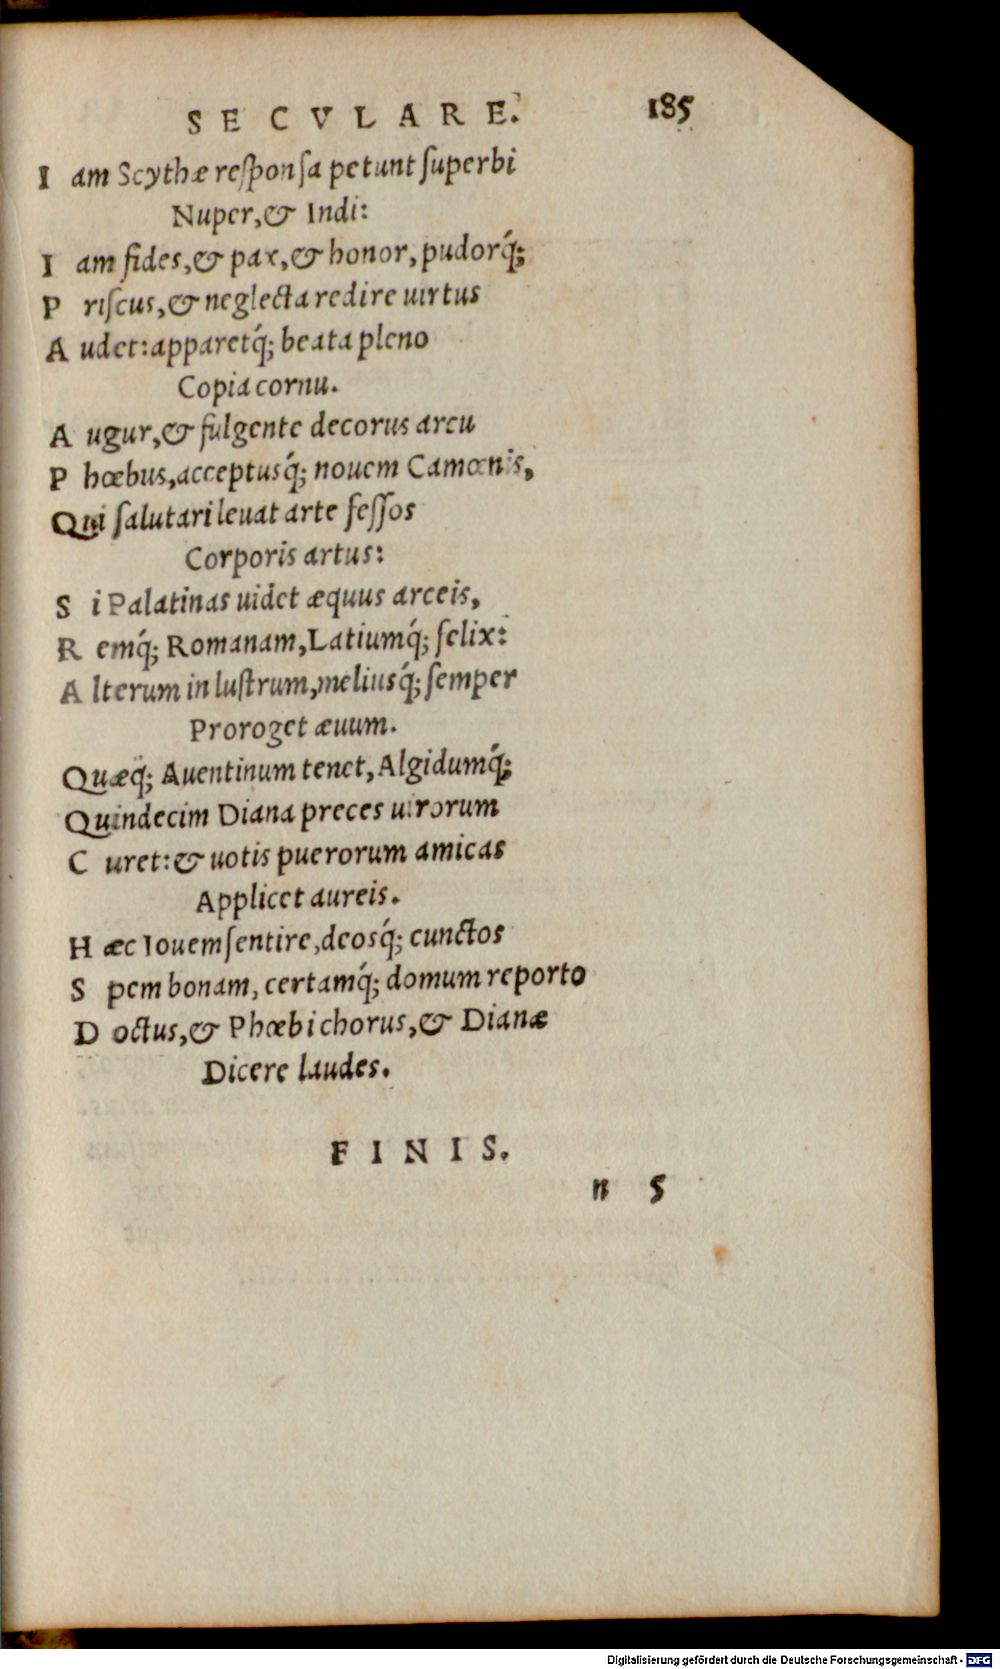 SECVLARE. 185
I am Scythæ reſponſa petunt ſuperbi
Nuper, & Indi:
I am fides, & pax, & honor, pudorq́;
P riſcus, & neglecta redire uirtus
A udet: apparetq́; beata pleno
Copia cornu.
A ugur, & fulgente decorus arcu
P hœbus, acceptusq́; nouem Camœnis,
Qui ſalutari leuat arte feſſos
Corporis artus:
S i Palatinas uidet æquus arceis,
R emq́; Romanam, Latiumq́; felix:
A lterum in luſtrum, meliusq́; ſemper
Proroget æuum.
Quæq́; Auentinum tenet, Algidumq́;
Quindecim Diana preces uirorum
C uret: & uotis puerorum amicas
Applicet aureis.
H æc Iouem ſentire, deosq́; cunctos
S pem bonam, certamq́; domum reporto
D octus, & Phœbi chorus, & Dianæ
Dicere laudes.
FINIS.
n 5
Digitalisierung gefördert durch die Deutsche Forschungsgemeinschaft - DFG